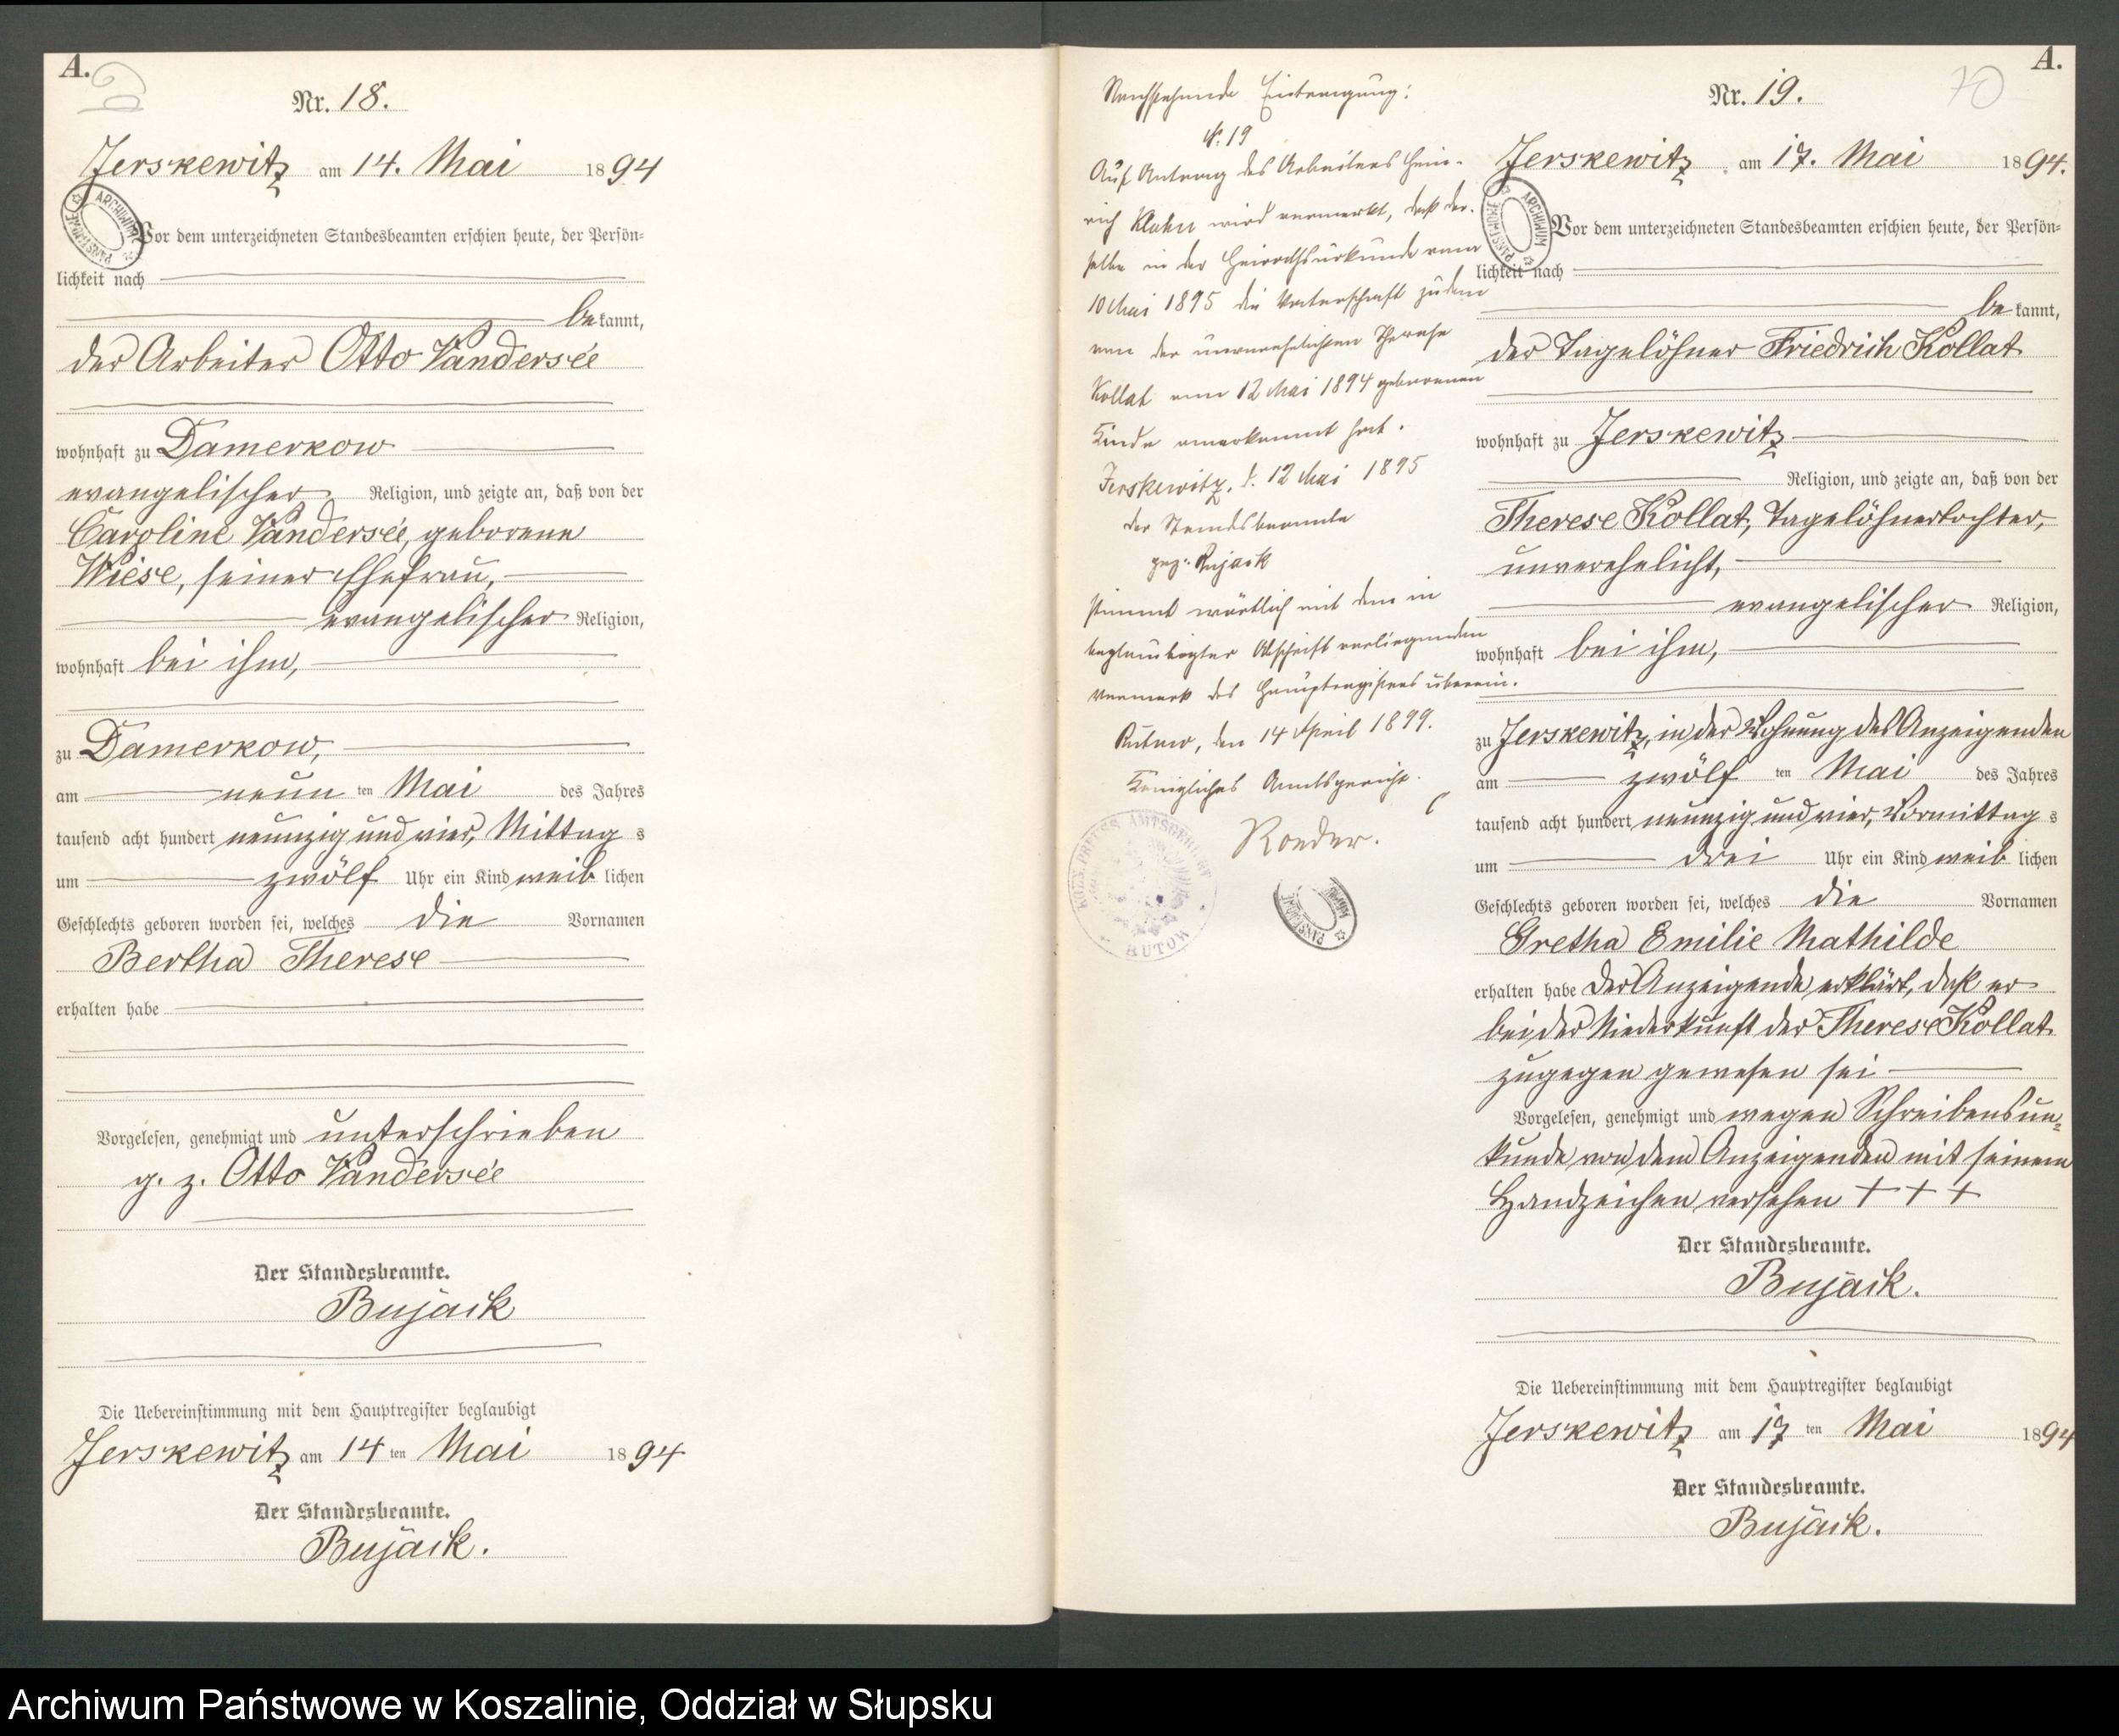 A.
Nr. 18.
Jerskewitz am 14. Mai 1894
Vor dem unterzeichneten Standesbeamten erschien heute, der Persön-
lichkeit nach
bekannt,
der Arbeiter Otto Vandersée
wohnhaft zu Damerkow
evangelischer Religion, und zeigte an, daß von der
Caroline Vandersée, geborene
Wiese, seiner Ehefrau,
evangelischer Religion,
wohnhaft bei ihm,
zu Damerkow,
am neun ten Mai des Jahres
tausend acht hundert neunzig und vier, Mittag s
um zwölf Uhr ein Kind weiblichen
Geschlechts geboren worden sei, welches die Vornamen
Bertha Therese
erhalten habe
Vorgelesen, genehmigt und unterschrieben
g. z. Otto Vandersée
Der Standesbeamte.
Bujack
Die Uebereinstimmung mit dem Hauptregister beglaubigt
Jerskewitz am 14 ten Mai 1894
Der Standesbeamte.
Bujack.
Nachstehende Eintragung:
N. 19
Auf Antrag des Arbeiters Hein-
rich Klahn wird vermerkt, daß der-
selbe in der Heirathsurkunde vom
10 Mai 1895 die Vaterschaft zu dem
von der unverehelichten Therese
Kollat am 12 Mai 1894 geborenen
Kinde anerkannt hat.
Jerskewitz, d. 12 Mai 1895
der Standesbeamte
gez. Bujack
stimmt wörtlich mit dem in
beglaubigter Abschrift vorliegenden
Vermerk des Hauptregisters überein.
Bütow, den 14 April 1899.
Königliches Amtsgericht.
Roeder.
KÖNIGL. PREUSS. AMTSGERICHT
BÜTOW
A.
70
Nr. 19.
Jerskewitz am 17. Mai 1894.
Vor dem unterzeichneten Standesbeamten erschien heute, der Persön-
lichkeit nach
bekannt,
der Tagelöhner Friedrich Kollat
wohnhaft zu Jerskewitz
Religion, und zeigte an, daß von der
Therese Kollat, Tagelöhnertochter,
unverehelicht,
evangelischer Religion,
wohnhaft bei ihm,
zu Jerskewitz, in der Wohnung des Anzeigenden
am zwölf ten Mai des Jahres
tausend acht hundert neunzig und vier, Vormittag s
um drei Uhr ein Kind weiblichen
Geschlechts geboren worden sei, welches die Vornamen
Gretha Emilie Mathilde
erhalten habe Der Anzeigende erklärt, daß er
bei der Niederkunft der Therese Kollat
zugegen gewesen sei
Vorgelesen, genehmigt und wegen Schreibensun-
kunde von dem Anzeigenden mit seinem
Handzeichen versehen + + +
Der Standesbeamte.
Bujack.
Die Uebereinstimmung mit dem Hauptregister beglaubigt
Jerskewitz am 17 ten Mai 1894
Der Standesbeamte.
Bujack.
Archiwum Państwowe w Koszalinie, Oddział w Słupsku